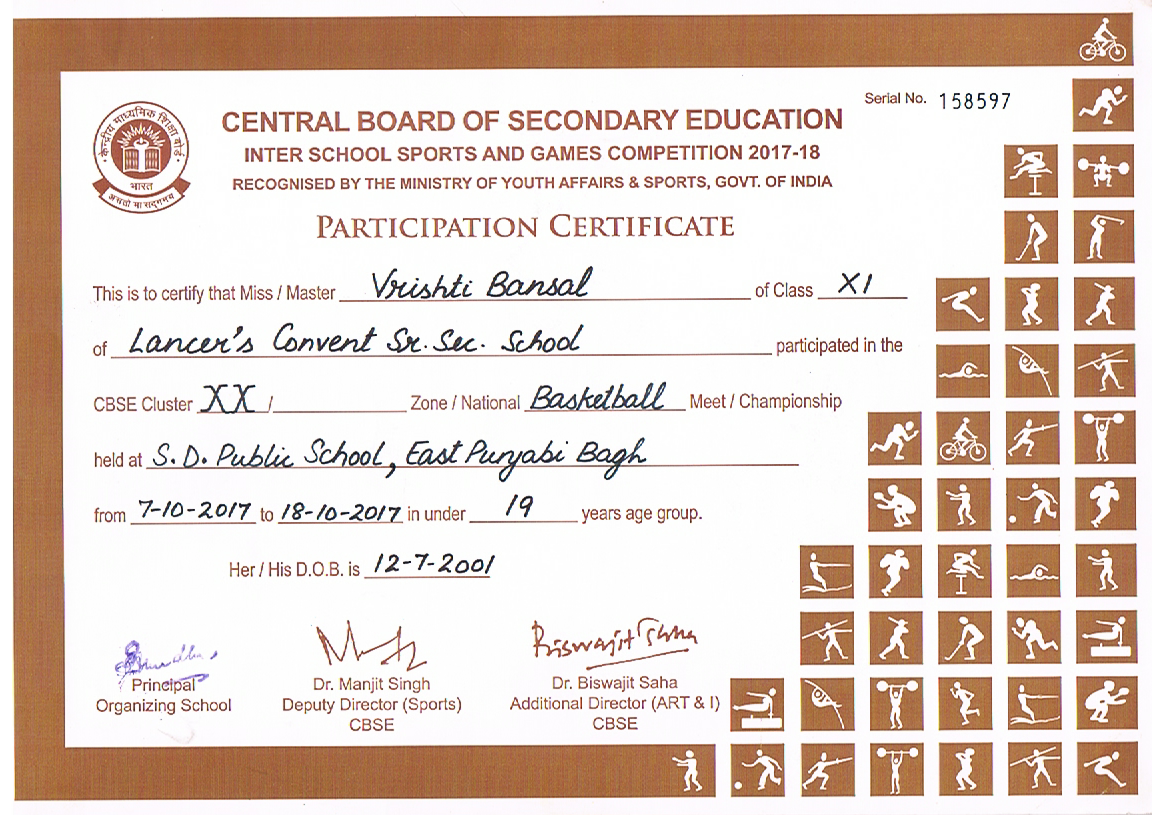 Serial No. 158597
केन्द्रीय माध्यमिक शिक्षा बोर्ड
भारत
असतो मा सद्गमय
CENTRAL BOARD OF SECONDARY EDUCATION
INTER SCHOOL SPORTS AND GAMES COMPETITION 2017-18
RECOGNISED BY THE MINISTRY OF YOUTH AFFAIRS & SPORTS, GOVT. OF INDIA
PARTICIPATION CERTIFICATE
This is to certify that Miss / Master Vrishti Bansal of Class XI
of Lancer's Convent Sr. Sec. School participated in the
CBSE Cluster XX / Zone / National Basketball Meet / Championship
held at S.D. Public School, East Punjabi Bagh
from 7-10-2017 to 18-10-2017 in under 19 years age group.
Her / His D.O.B. is 12-7-2001
Biswajit Saha
Principal Dr. Manjit Singh Dr. Biswajit Saha
Organizing School Deputy Director (Sports) Additional Director (ART & I)
CBSE CBSE